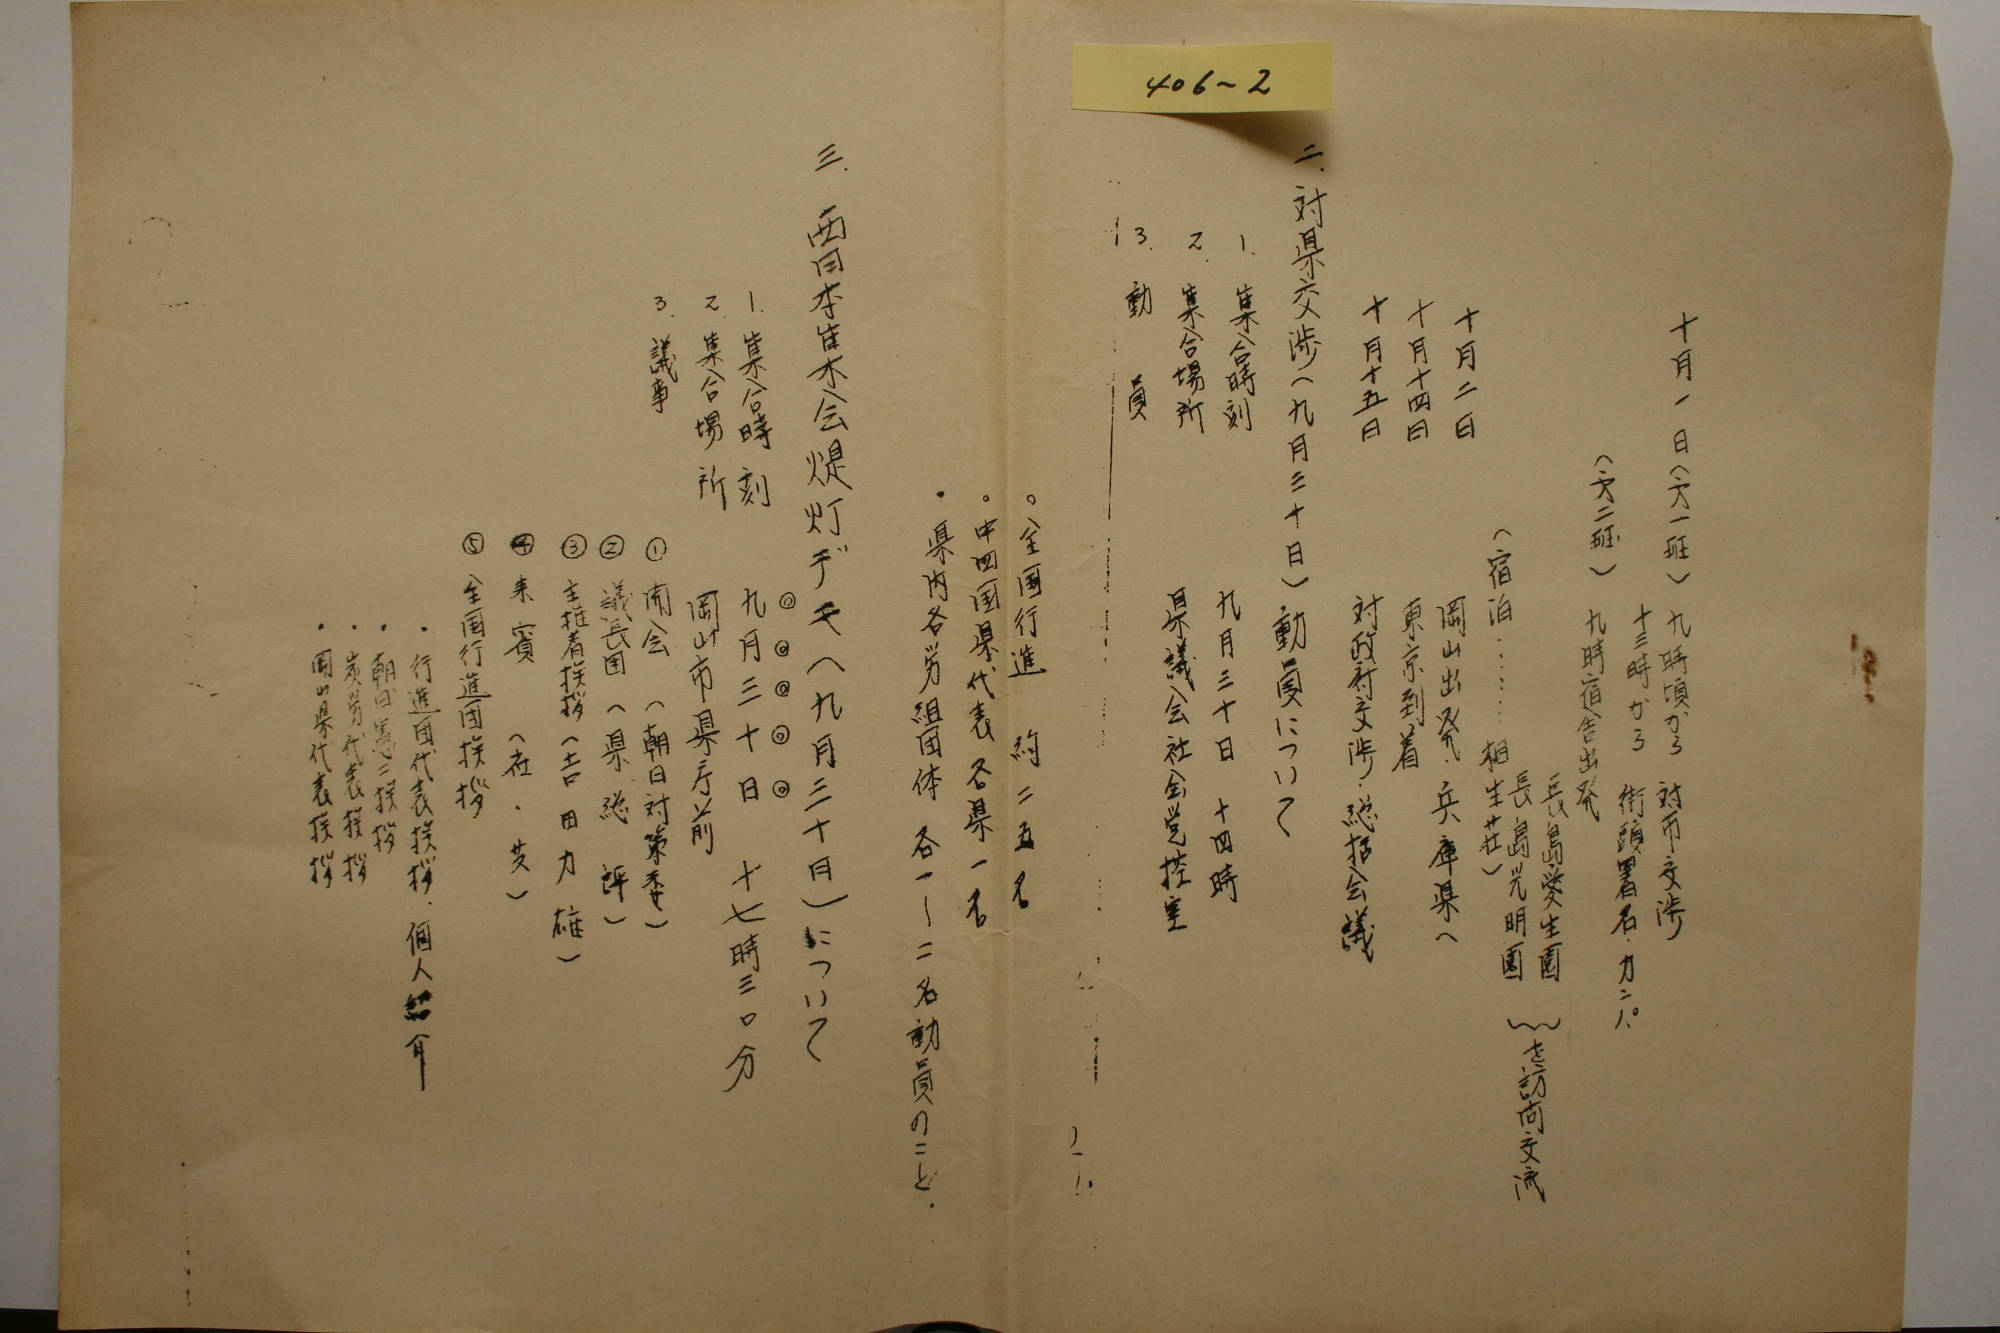 406~2
十月一日(才一班)九時頃から 対市交渉
十三時から 街頭署名・カンパ
(才二班)九時宿舎出発
長島愛生園
長島光明園
を訪問交流
(宿泊……相生荘)
十月二日 岡山出発、兵庫県へ
十月十四日 東京到着
十月十五日 対政府交渉・総括会議
二.対県交渉(九月三十日)動員について
1.集合時刻 九月三十日 十四時
2.集合場所 県議会社会党控室
3.動員
○全国行進 約二五名
○中四国県代表 各県一名
・県内各労組団体 各一~二名動員のこと.
三.西日本集会提灯デモ(九月三十日)について
◎◎◎◎◎
1.集合時刻 九月三十日 十七時三〇分
2.集合場所 岡山市県庁前
3.議事
① 開会 (朝日対策委)
② 議長団(県総評)
③ 主催者挨拶(吉田力雄)
④ 来賓 (社・共)
⑤ 全国行進団挨拶
・行進団代表挨拶、個人紹介
・朝日憲二挨拶
・炭労代表挨拶
・岡山県代表挨拶